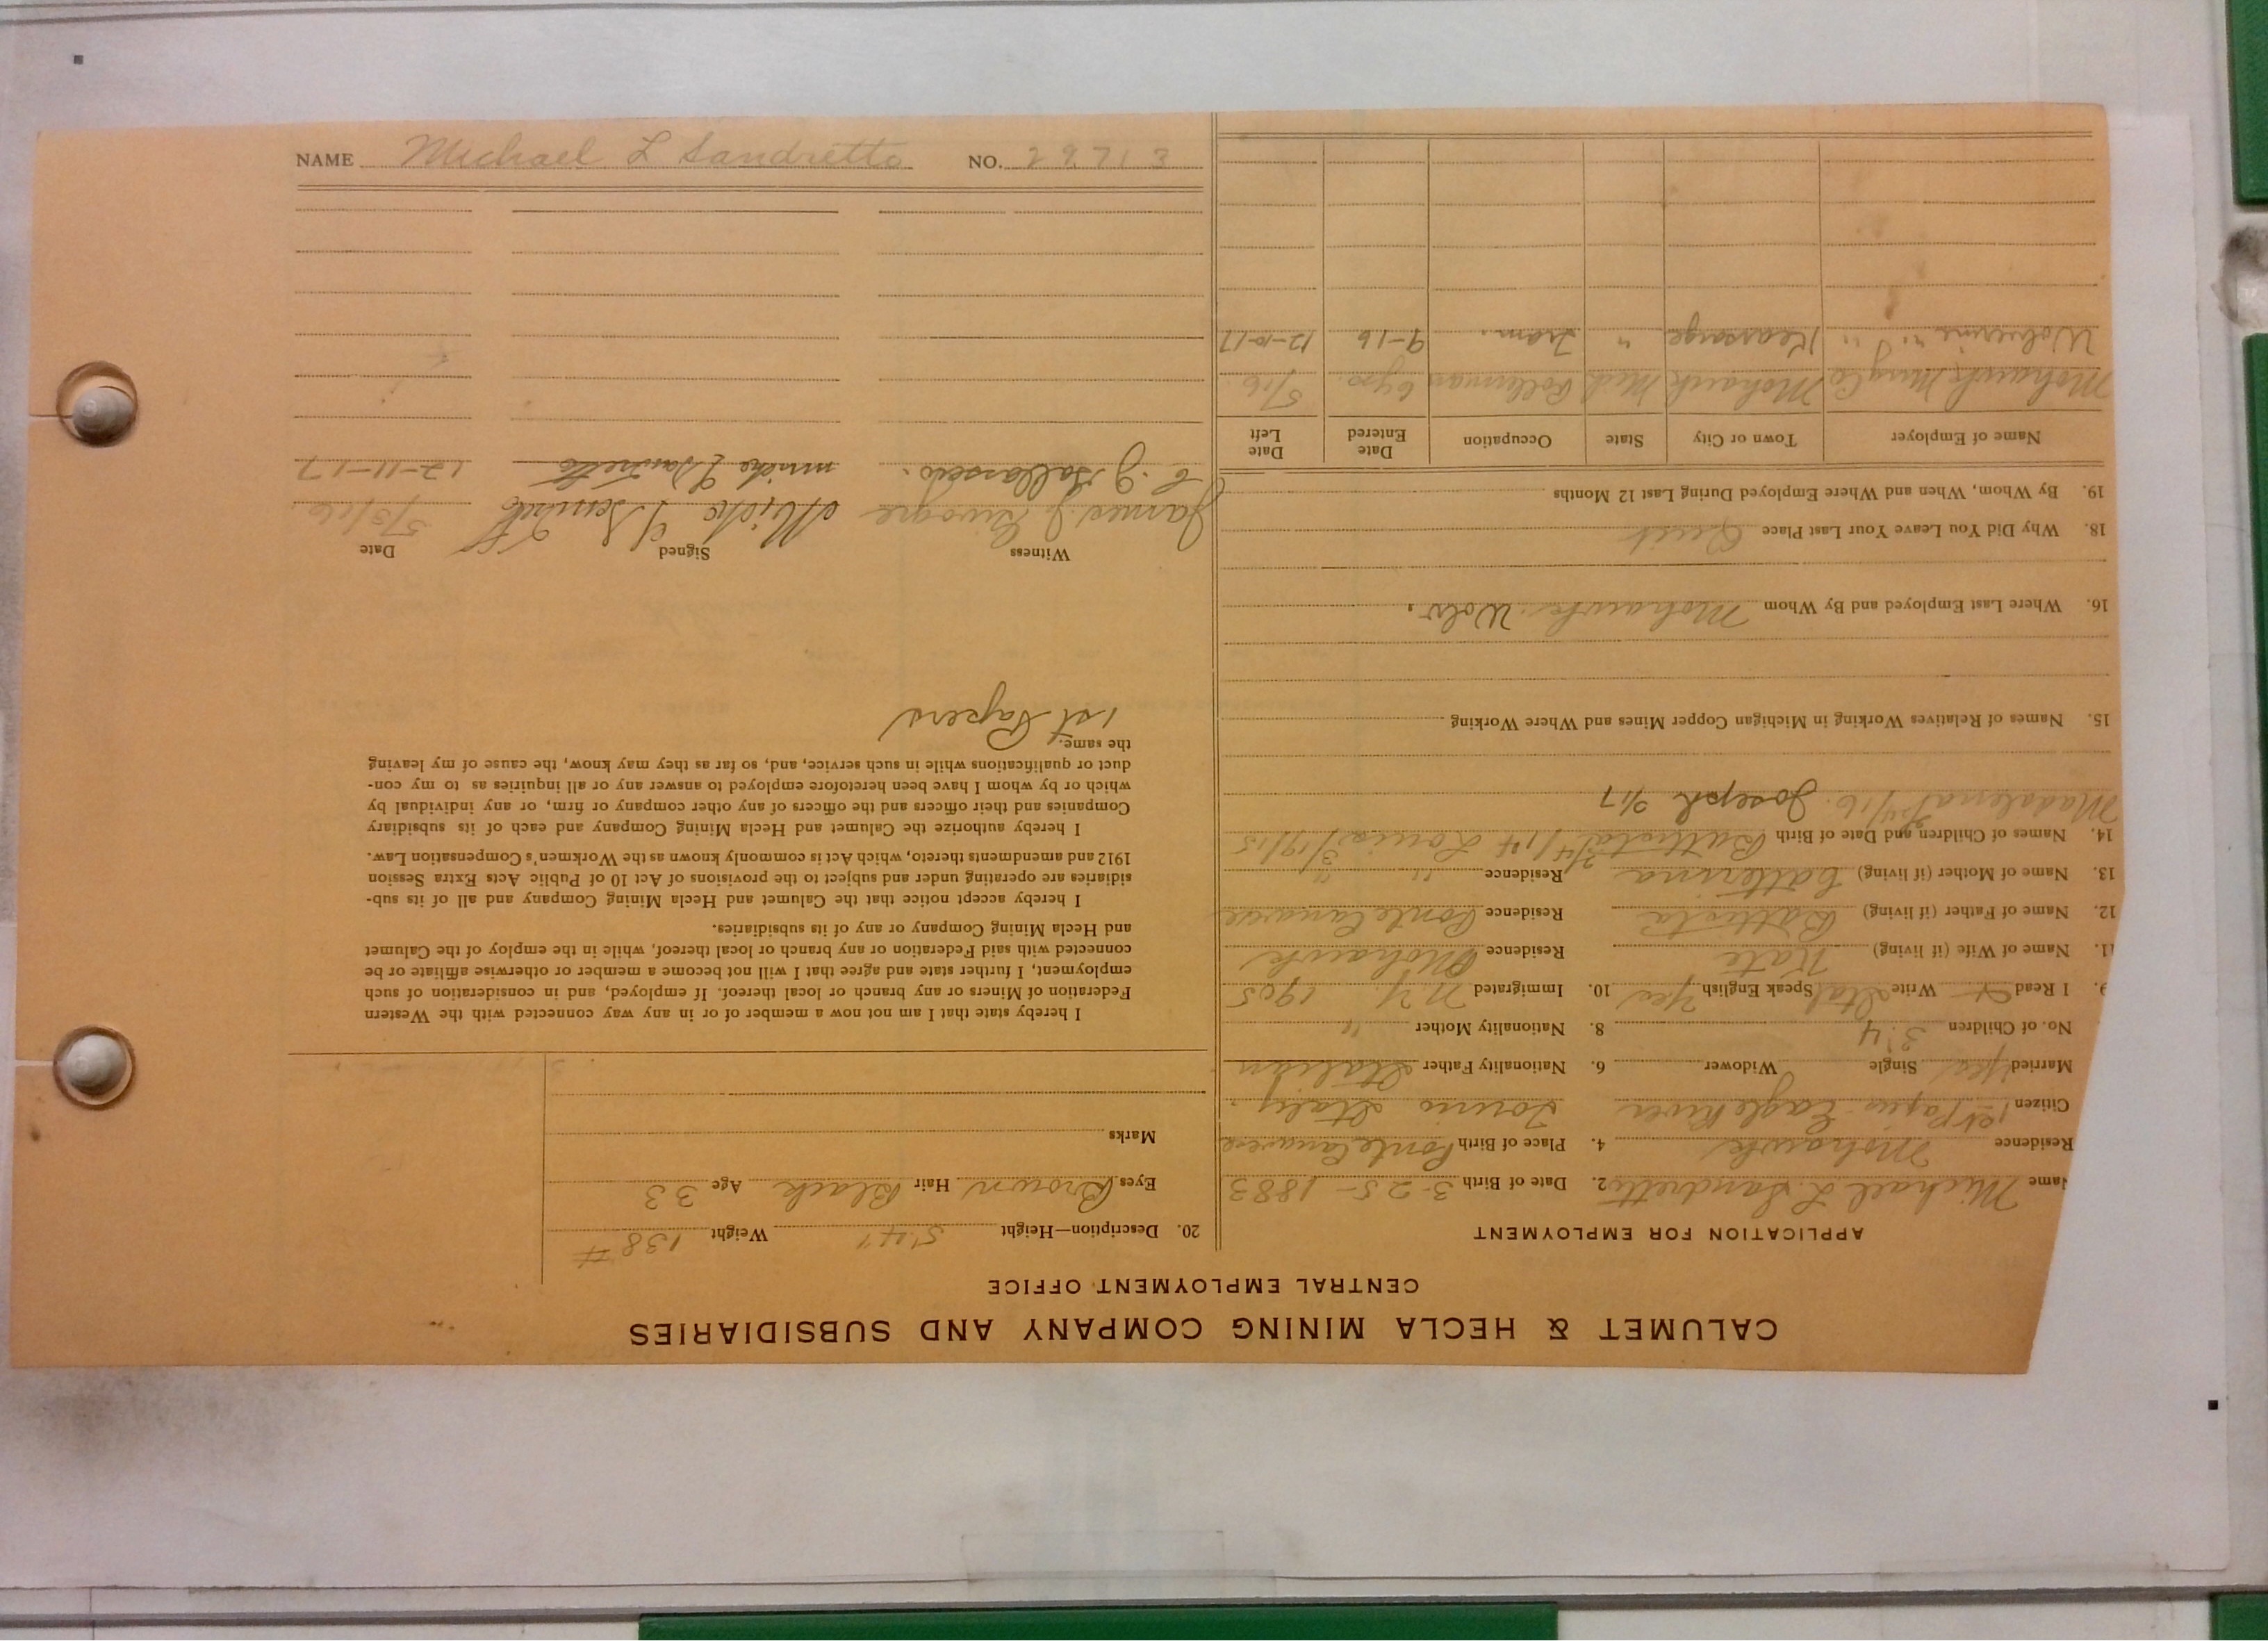 CALUMET & HECLA MINING COMPANY AND SUBSIDIARIES
CENTRAL EMPLOYMENT OFFICE
APPLICATION FOR EMPLOYMENT
Name Michael L. Sandretto 2. Date of Birth 3-25-1883
Residence Mohawk 4. Place of Birth
Citizen 1st Papers Eagle River Italy
Married yes Single Widower 6. Nationality Father Italian
No. of Children 3. 4 8. Nationality Mother "
9. I Read Write Ital Speak English Yes 10. Immigrated N.Y. 1905
11. Name of Wife (if living) Kate Residence Mohawk
12. Name of Father (if living) Battista Residence
13. Name of Mother (if living) Catterina Residence " "
14. Names of Children and Date of Birth
Joseph
15. Names of Relatives Working in Michigan Copper Mines and Where Working
16. Where Last Employed and By Whom Mohawk. Wolv.
18. Why Did You Leave Your Last Place Quit
19. By Whom, When and Where Employed During Last 12 Months
Name of Employer Town or City State Occupation Date Entered Date Left
Mohawk Mng Co Mohawk Mich 6 yrs. 5/16
Wolverine " " Kearsarge " Tram. 9-16 12-10-17
20. Description—Height 5'4" Weight 138 #
Eyes Brown Hair Black Age 33
Marks
I hereby state that I am not now a member of or in any way connected with the Western
Federation of Miners or any branch or local thereof. If employed, and in consideration of such
employment, I further state and agree that I will not become a member or otherwise affiliate or be
connected with said Federation or any branch or local thereof, while in the employ of the Calumet
and Hecla Mining Company or any of its subsidiaries.
I hereby accept notice that the Calumet and Hecla Mining Company and all of its sub-
sidiaries are operating under and subject to the provisions of Act 10 of Public Acts Extra Session
1912 and amendments thereto, which Act is commonly known as the Workmen's Compensation Law.
I hereby authorize the Calumet and Hecla Mining Company and each of its subsidiary
Companies and their officers and the officers of any other company or firm, or any individual by
which or by whom I have been heretofore employed to answer any or all inquiries as to my con-
duct or qualifications while in such service, and, so far as they may know, the cause of my leaving
the same.
1st Papers
Witness Signed Date
James J. 5/5/16
12-11-17
NAME Michael L Sandretto NO. 29713